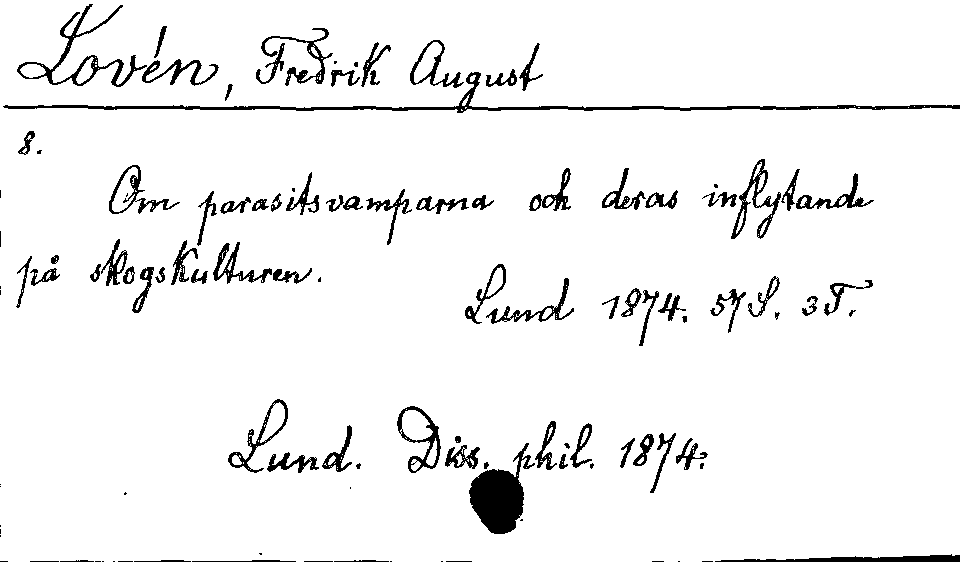 Lovén, Fredrik August
8.
Om parasitsvamparna och deras inflytande
på skogskulturen.
Lund 1874. 57 S. 3 T.
Lund. Diss. phil. 1874.